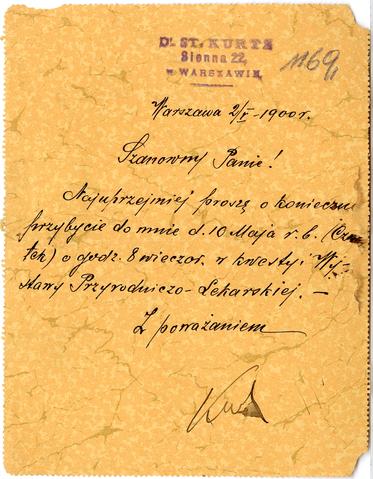 Dr ST. KURTZ
Sienna 22,
w WARSZAWIE.
1169
Warszawa 2/V-1900 r.
Szanowny Panie!
Najuprzejmiej proszę o konieczne
przybycie do mnie d. 10 Maja r. b. (Czwar
tek) o godz. 8 wieczor. w kwestyi Wy-
stawy Przyrodniczo-Lekarskiej. —
Z poważaniem